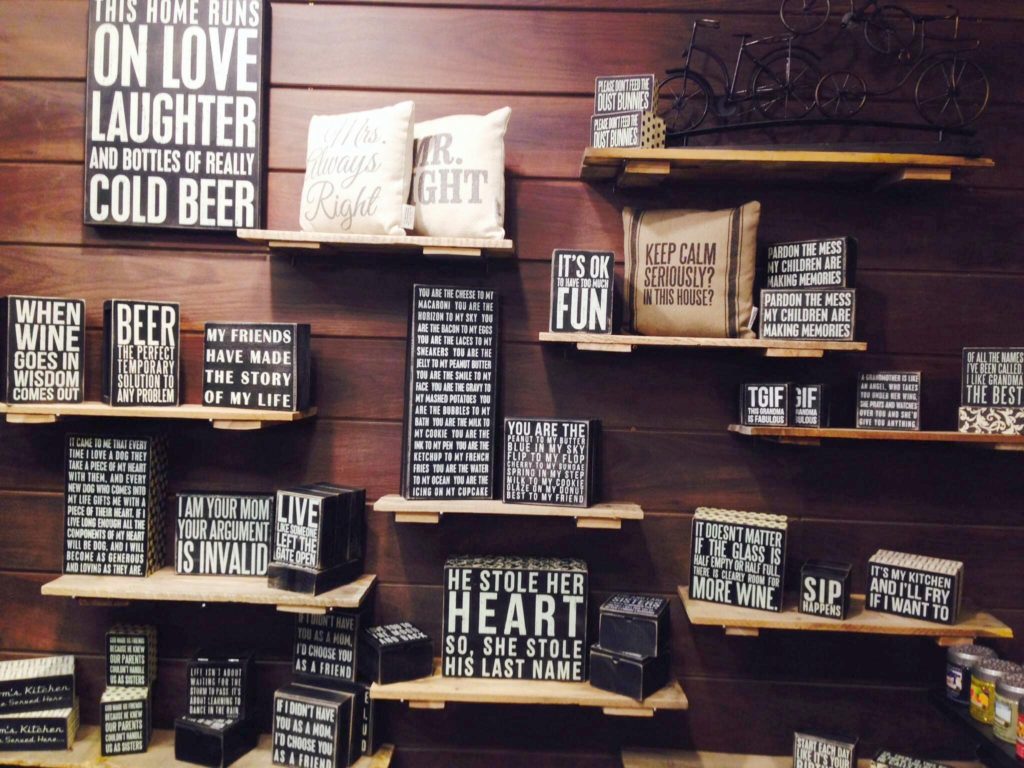 THIS HOME RUNS
ON LOVE
LAUGHTER
AND BOTTLES OF REALLY
COLD BEER
Mrs.
Always
Right
MR.
PLEASE DON'T FEED THE
DUST BUNNIES
PLEASE DON'T FEED THE
DUST BUNNIES
IT'S OK
TO HAVE TOO MUCH
FUN
KEEP CALM
SERIOUSLY?
IN THIS HOUSE?
PARDON THE MESS
MY CHILDREN ARE
MAKING MEMORIES
PARDON THE MESS
MY CHILDREN ARE
MAKING MEMORIES
WHEN
WINE
GOES IN
WISDOM
COMES OUT
BEER
THE PERFECT
TEMPORARY
SOLUTION TO
ANY PROBLEM
MY FRIENDS
HAVE MADE
THE STORY
OF MY LIFE
YOU ARE THE CHEESE TO MY
MACARONI YOU ARE THE
HORIZON TO MY SKY YOU
ARE THE BACON TO MY EGGS
YOU ARE THE LACES TO MY
SNEAKERS YOU ARE THE
JELLY TO MY PEANUT BUTTER
YOU ARE THE SMILE TO MY
FACE YOU ARE THE GRAVY TO
MY MASHED POTATOES YOU
ARE THE BUBBLES TO MY
BATH YOU ARE THE MILK TO
MY COOKIE YOU ARE THE
INK TO MY PEN YOU ARE THE
KETCHUP TO MY FRENCH
FRIES YOU ARE THE WATER
TO MY OCEAN YOU ARE THE
ICING ON MY CUPCAKE
YOU ARE THE
PEANUT TO MY BUTTER
BLUE IN MY SKY
FLIP TO MY FLOP
CHERRY TO MY SUNDAE
SPRING IN MY STEP
MILK TO MY COOKIE
GLAZE ON MY DONUT
BEST TO MY FRIEND
TGIF
THIS GRANDMA
IS FABULOUS
GIF
A GRANDMOTHER IS LIKE
AN ANGEL, WHO TAKES
YOU UNDER HER WING,
SHE PRAYS AND WATCHES
OVER YOU AND SHE'D
GIVE YOU ANYTHING
OF ALL THE NAMES
I'VE BEEN CALLED
I LIKE GRANDMA
THE BEST
IT CAME TO ME THAT EVERY
TIME I LOVE A DOG THEY
TAKE A PIECE OF MY HEART
WITH THEM, AND EVERY
NEW DOG WHO COMES INTO
MY LIFE GIFTS ME WITH A
PIECE OF THEIR HEART. IF I
LIVE LONG ENOUGH ALL THE
COMPONENTS OF MY HEART
WILL BE DOG, AND I WILL
BECOME AS GENEROUS
AND LOVING AS THEY ARE.
I AM YOUR MOM
YOUR ARGUMENT
IS INVALID
LIVE
LIKE SOMEONE
LEFT THE
GATE OPEN
HE STOLE HER
HEART
SO, SHE STOLE
HIS LAST NAME
IT DOESN'T MATTER
IF THE GLASS IS
HALF EMPTY OR HALF FULL
THERE IS CLEARLY ROOM FOR
MORE WINE
SIP
HAPPENS
IT'S MY KITCHEN
AND I'LL FRY
IF I WANT TO
Kitchen
Served Here
Mom's Kitchen
Served Here...
GOD MADE US FRIENDS
BECAUSE HE KNEW
OUR PARENTS
COULDN'T HANDLE
US AS SISTERS
GOD MADE US FRIENDS
BECAUSE HE KNEW
OUR PARENTS
COULDN'T HANDLE
US AS SISTERS
LIFE ISN'T ABOUT
WAITING FOR THE
STORM TO PASS IT'S
ABOUT LEARNING TO
DANCE IN THE RAIN
IF I DIDN'T HAVE
YOU AS A MOM,
I'D CHOOSE YOU
AS A FRIEND
IF I DIDN'T HAVE
YOU AS A MOM,
I'D CHOOSE YOU
AS A FRIEND
START EACH DAY
LIKE IT'S YOUR